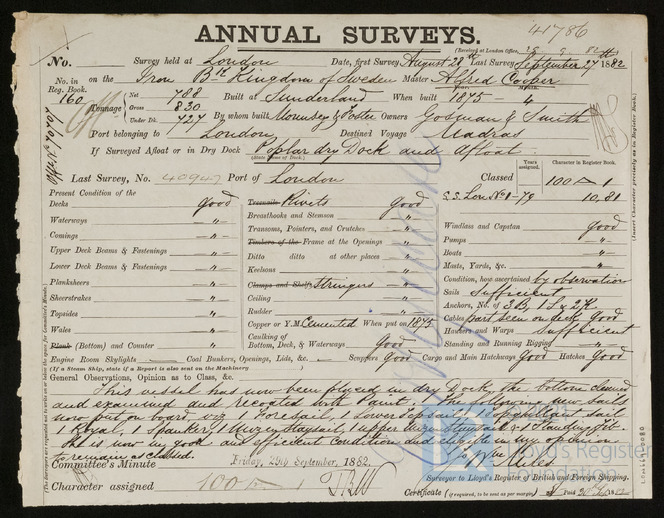 41786
ANNUAL SURVEYS.
(Received at London Office, 29 9 82
No. Survey held at London Date, first Survey August 28th Last Survey September 27th 1882
No. in Reg. Book. 160 on the Iron Bk Kingdom of Sweden Master Alfred Cooper
Tonnage Net 788 Built at Sunderland When built 1875 - 4
Gross 830
Under Dk. 727 By whom built Mounsey & Foster Owners Godman & Smith
Port belonging to London Destined Voyage Madras
If Surveyed Afloat or in Dry Dock Poplar dry Dock and Afloat
(State name of Dock.)
Last Survey, No. 40947 Port of London Classed
Years assigned. Character in Register Book.
100 A 1
S.S. Lon No 1-79 10,81
(Insert Character precisely as in Register Book.)
Present Condition of the
Decks good
Waterways "
Comings "
Upper Deck Beams & Fastenings "
Lower Deck Beams & Fastenings "
Planksheers "
Sheerstrakes "
Topsides "
Wales "
Plank (Bottom) and Counter "
Treenails Rivets Good
Breasthooks and Stemson "
Transoms, Pointers, and Crutches "
Timbers of the Frame at the Openings "
Ditto ditto at other places "
Keelsons "
Clamps and Shelfs Stringers "
Ceiling "
Rudder "
Copper or Y.M. Cemented When put on 1875
Caulking of Bottom, Deck, & Waterways Good
Windlass and Capstan Good
Pumps "
Boats "
Masts, Yards, &c. "
Condition, how ascertained by observation
Sails Sufficient
Anchors, No. of 3B, 1S, 2K
Cables part seen on deck Good
Hawsers and Warps Sufficient
Standing and Running Rigging "
Engine Room Skylights Coal Bunkers, Openings, Lids, &c. Scuppers Good Cargo and Main Hatchways Good Hatches Good
(If a Steam Ship, state if a Report is also sent on the Machinery )
General Observations, Opinion as to Class, &c.
This vessel has now been placed in dry Dock, the bottom cleaned
and examined and recoated with Paint. The following new sails
now put on board viz 1 Foresail, 1 Lower Topsail, 1 Topgallant sail
1 Royal, 1 Spanker, 1 Mizen Staysail, 1 upper Mizen Staysail & 1 Standing Jib.
She is now in good and efficient condition and eligible in my opinion
to remain as classed.
Wm Miles
Surveyor to Lloyd's Register of British and Foreign Shipping.
Committee's Minute Friday, 29th September, 1882
Character assigned 100 A
Certificate (if required, to be sent as per margin)
Lloyd's Register
Foundation